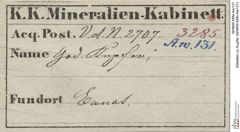 K.K. Mineralien-Kabinett.
Acq. Post. V.d.N. 2707. 3285
A.w. 131.
Name Ged. Kupfer,
Fundort